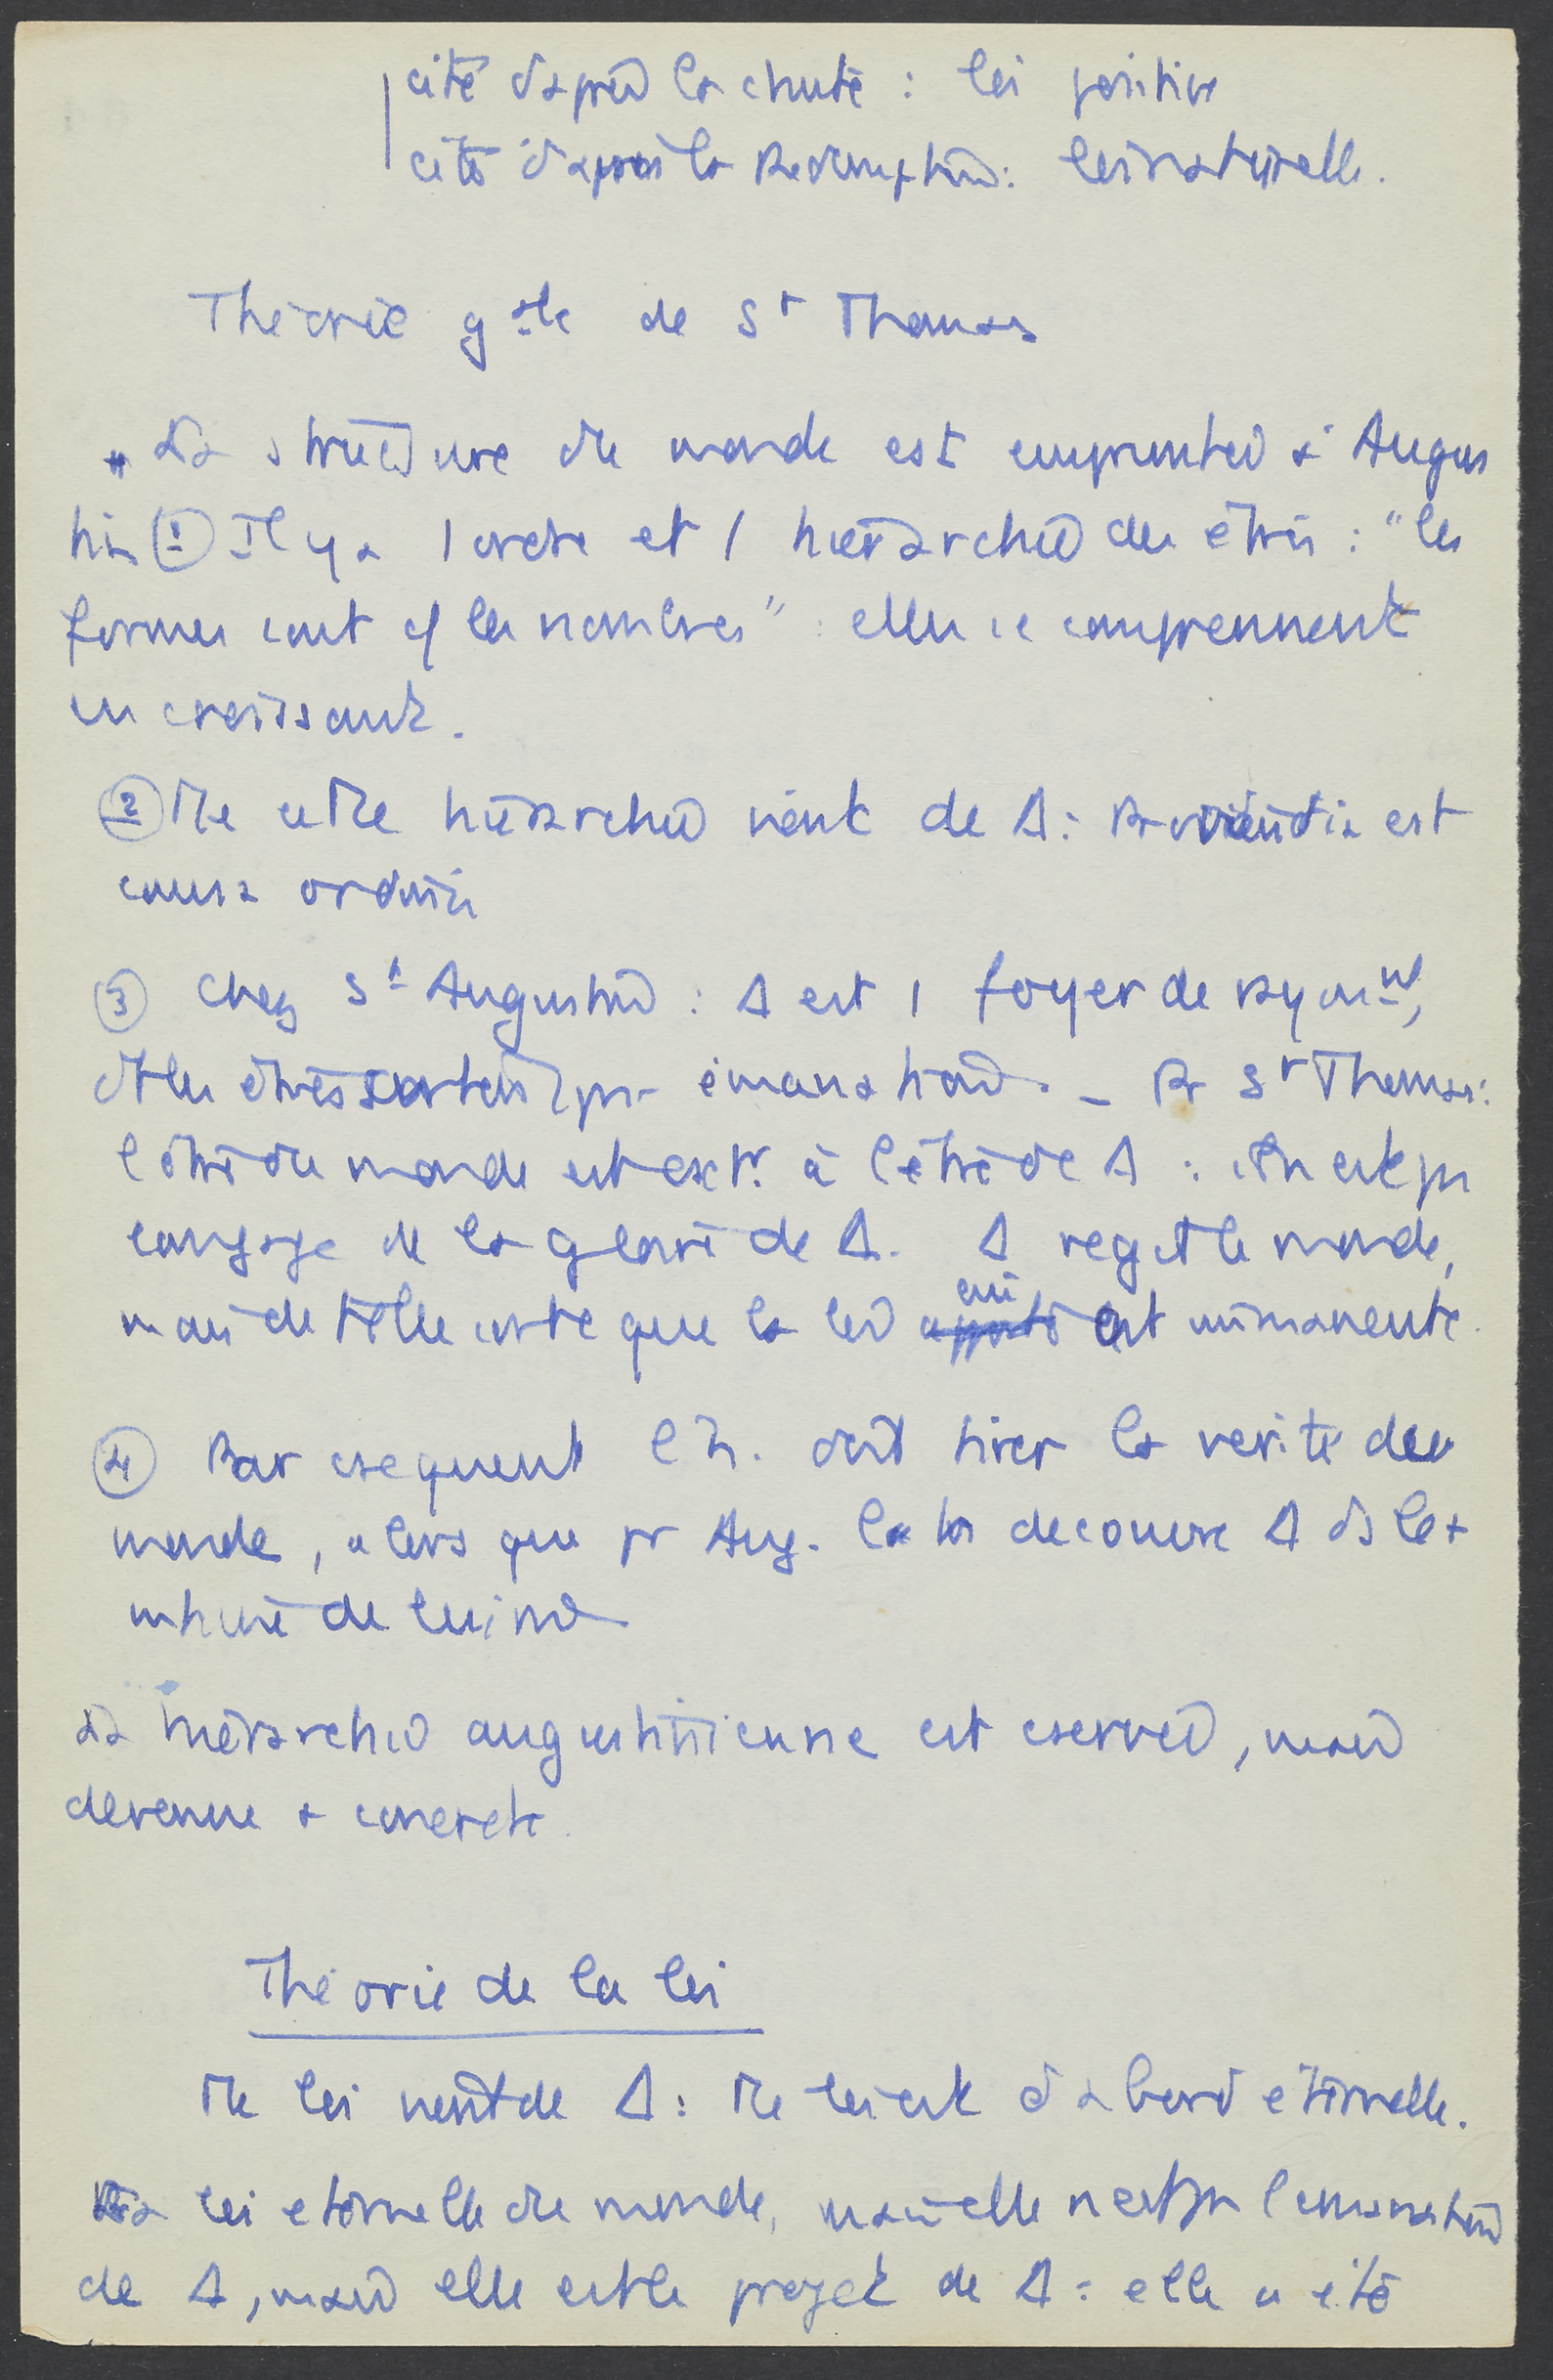 cité d'après la chute : loi positive
cité d'après la Rédemption : loi naturelle.
Théorie gale de St Thomas
La structure du monde est empruntée à Augus
tin ① Il y a 1 ordre et 1 hiérarchie des êtres : "les
formes sont cf les nombres" : elles se comprennent
en croissant.
② Tte cette hiérarchie vient de Δ : Providentia est
causa ordinis
③ Chez St Augustin : Δ est 1 foyer de rayonnt,
et les êtres sortent par émanation. - Pr St Thomas :
l'être du monde est extr. à l'être de Δ : est
de la gloire de Δ. Δ régit le monde,
mais de telle sorte que la loi lui est immanente.
④ Par csequent l'h. doit tirer la vérité du
monde, alors que pr Aug. la découvre Δ ds la
de lui m
La hiérarchie augustinienne est cservée, mais
devenue + concrète.
Théorie de la loi
Tte loi vient de Δ : Tte loi est d'abord éternelle.
La loi éternelle du monde, mais elle n'est pas l'émanation
de Δ, mais elle est le projet de Δ : elle a été